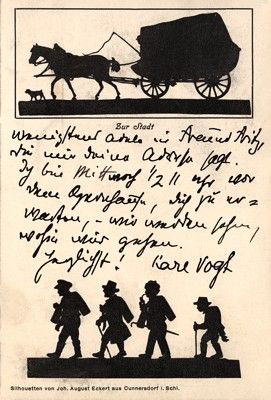 Zur Stadt
wenigstens in Freund Fritz,
die mir deine Adresse sagt.
Ich bin Mittwoch ½ 11 Uhr vor
dem Opernhaus, dich zu er=
warten, – wir werden sehen,
wohin wir gehen.
Herzlichst! Karl Vogt
Silhouetten von Joh. August Eckert aus Cunnersdorf i. Schl.